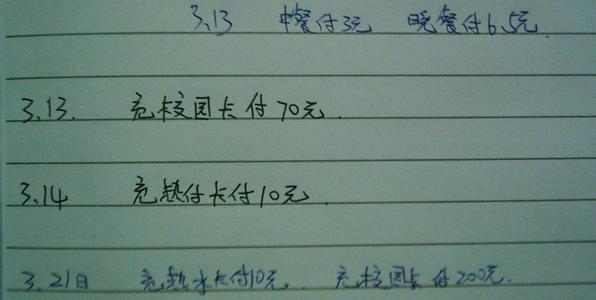 3.13 中餐付3元 晚餐付6.5元
3.13. 充校园卡付70元.
3.14 充热付卡付10元.
3.21日 充热水卡付10元. 充校园卡付200元.